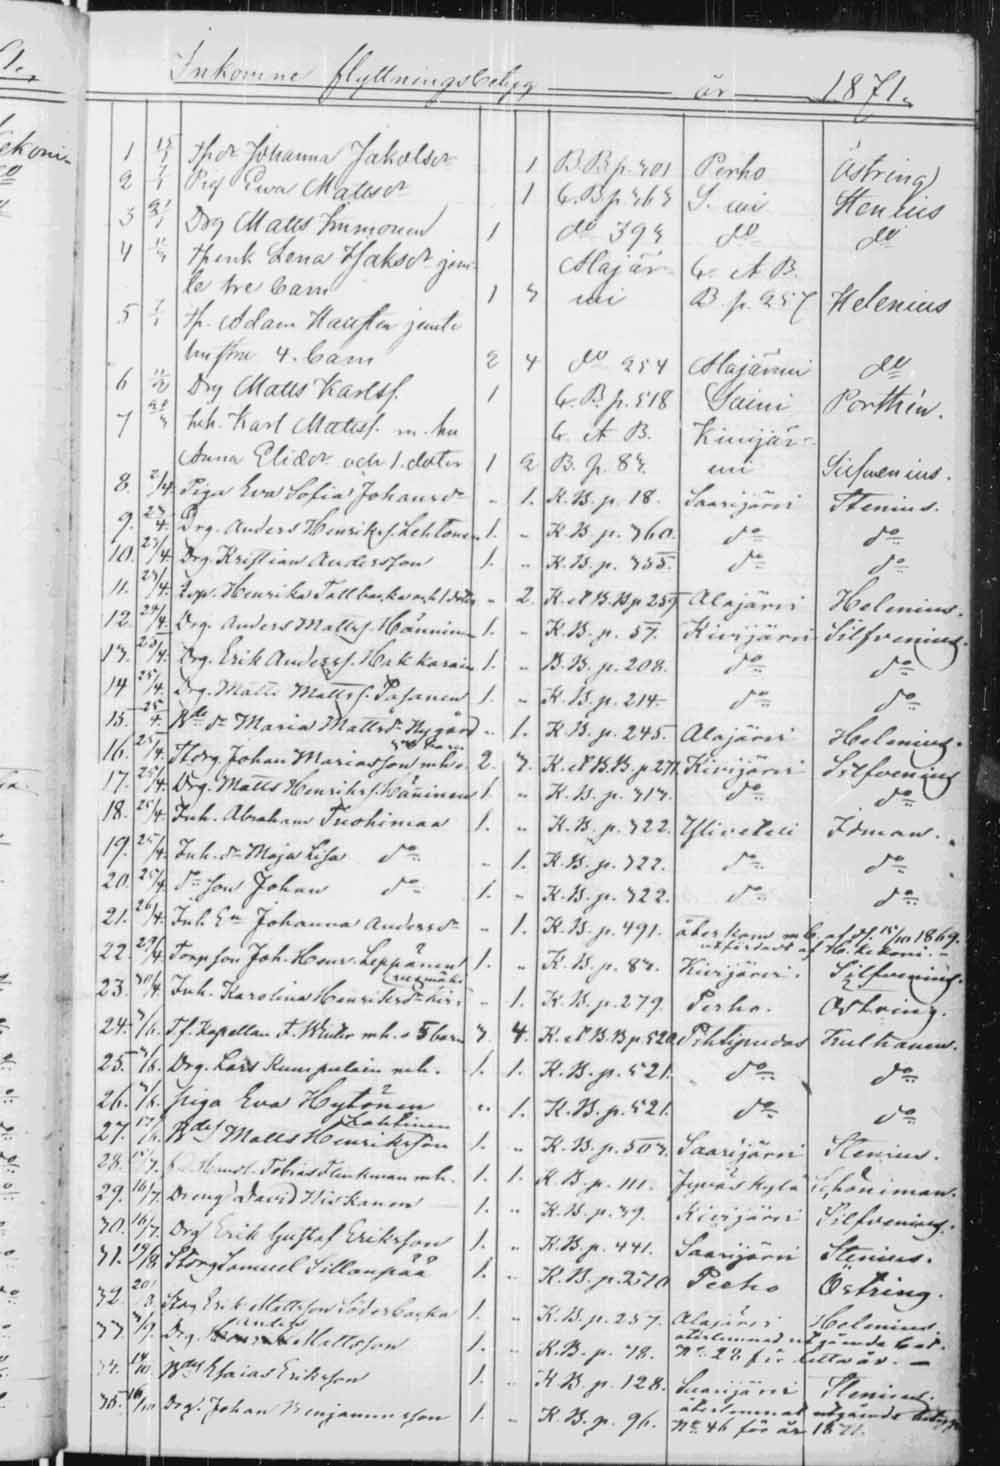 Inkomne flyttningsbetyg år 1871.
1 Johanna Jakobsdr 1 B.B. p. 301 Perho Östring
2 Pig Ewa Mattsdr 1 C.B. p. 363 S. mi Stenius
3 Drg Matts Immonen 1 do 393 do do
4 Lena Isaksdr jem- Alajär- C. A B.
te tre barn 1 3 mi B. p. 257 Helenius
5 Adam jemte
hustru 4. barn 2 4 do 254 Alajärvi do
6 Drg Matts Karlss. 1 C.B. p. 518 Saini Porthén.
7 Inh. Karl Matss. m. hu C. A B. Kivijär-
Anna Elisdr och 1. dotter 1 2 B. p. 83. mi Silfvenius.
8. 2/4. Piga Eva Sofia Johansdr „ 1. K.B. p. 18. Saarijärvi Stenius.
9. 23/4. Drg. Anders Henrikss. Lehtonen 1. „ K.B. p. 360. do do
10. 23/4. Drg. Kristian Andersson 1. „ K.B. p. 355. do do
11. 23/4. Henrika Tallbacka och 1 dotter „ 2. K. A B. B p 259 Alajärvi Helenius.
12. 24/4. Drg. Anders Mattss. Hänninen 1. „ K.B. p. 57. Kivijärvi Silfvenius.
13. 25/4. Drg. Erik Anderss. Hakkarain 1. „ B.B. p. 208. do do
14 25/4. Drg. Matts Mattss. Pasanen 1. „ K.B. p. 214. do do
15. 25/4. dr Maria Mattsdr Nygård „ 1. K.B. p. 245. Alajärvi Helenius.
16. 25/4. Storg Johan Mariasson mh o 2. 3. K. A B. B. p 271. Kivijärvi Silfvenius
17. 25/4. Drg. Matts Henrikss. Häninen 1. „ K.B. p. 313. do do
18. 25/4. Inh. Abraham Tuohimaa 1. „ K.B. p. 322. Yliveteli Idman.
19. 25/4. Inh. dr Maja Lisa do „ 1. K.B. p. 322. do do
20. 25/4. do son Johan do 1. „ K.B. p. 322. do do
21. 26/4. Inh. Johanna Andersdr „ 1. K.B. p. 491. återkom m. b. af d. 15/10 1869.
utfärdadt af
22. 29/4. Torpson Joh. Henr. Leppänen 1. „ K.B. p. 83. Kivijärvi. Silfvenius.
23. 30/4. Inh. Karolina Henriksdr „ 1. K.B. p. 279. Perho. Östring.
24. Tf. Kapellan F. Winter mh. o 5 barn 3. 4. K. A B. B p 520. Pihtipudas Kulhanen.
25. Drg. Lars Kumpulain mh. 1. 1. K.B. p. 521. do do
26. Piga Eva Hytönen „ 1. K.B. p. 521. do do
Lahtinen
27. Matts Henriksson 1. „ K.B. p. 503. Saarijärvi Stenius.
28. Tobias Flinkman mh. 1. 1. K.B. p. 111. Jyväskylä Schöneman.
29. 16/7. Dreng David Hiskanen 1. „ K.B. p. 39. Kivijärvi Silfvenius.
30. 16/7. Drg Erik Gustaf Eriksson 1. „ K.B. p. 441. Saarijärvi Stenius.
31. 19/8. Storg Samuel Sillanpää 1. „ K.B. p. 2510 Perho Östring.
32 Storg Erik Mattsson Söderbacka 1. „ K.B. p. 257. Alajärvi Helenius.
33. Drg. Mattsson 1. „ K.B. p. 78. återlemnad utgående bet.
No 28 för detta år.
34. Esaias Eriksson 1. „ K.B. p. 128. Saarijärvi Stenius.
35. Drg. Johan Benjaminsson 1. „ K.B. p. 96. återlemnat utgående betyg
No 46 för år 1871.